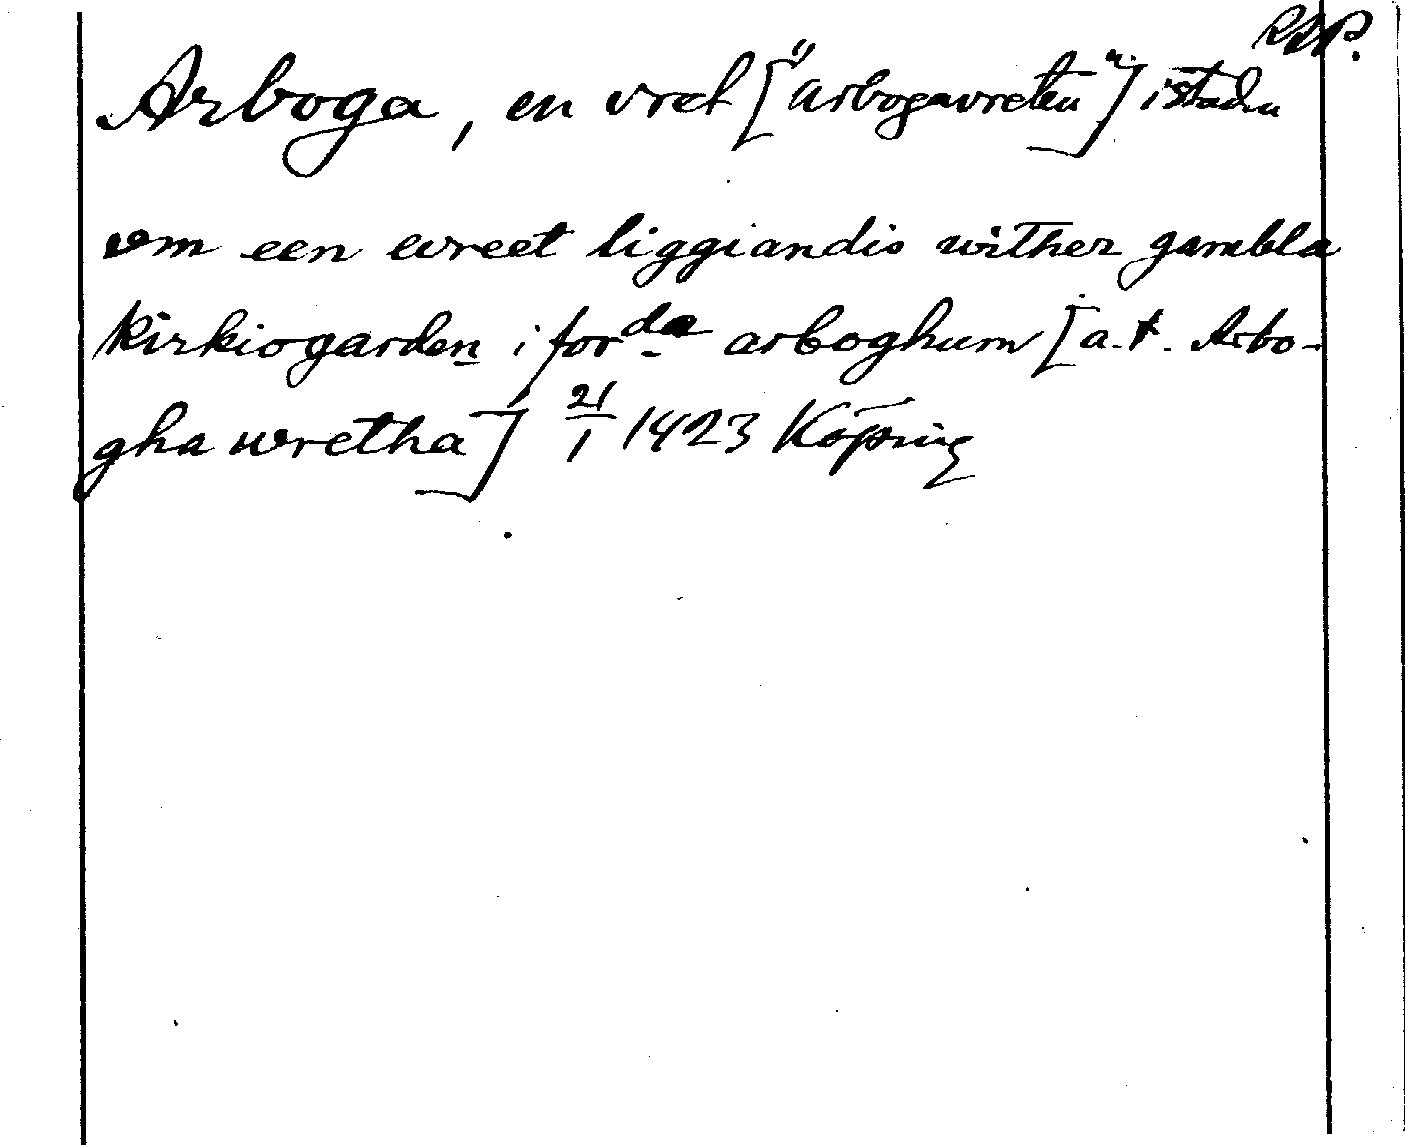 RAP.
Arboga, en vret ["arbogavreten"] i staden
vm een wreet liggiandis wither gambla
kirkiogarden i forda arboghum [a.t. Arbo-
gha wretha] 21/1 1423 Köping